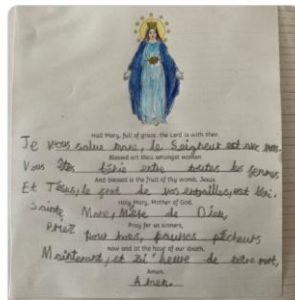 Hail Mary, full of grace, the Lord is with thee
Je vous salue mare, le Seigneur est avec vous.
Blessed art thou amongst women
Vous êtes bénie entre toutes les femmes
And blessed is the fruit of thy womb, Jesus
Et Jésus, le fruit de vos entrailles, est béni.
Holy Mary, Mother of God,
Sainte Marie, Mère de Dieu,
Pray for us sinners,
Priez pour nous, pauvres pécheurs
now and at the hour of our death,
Maintenant, et à l'heure de notre mort,
Amen.
Amen.